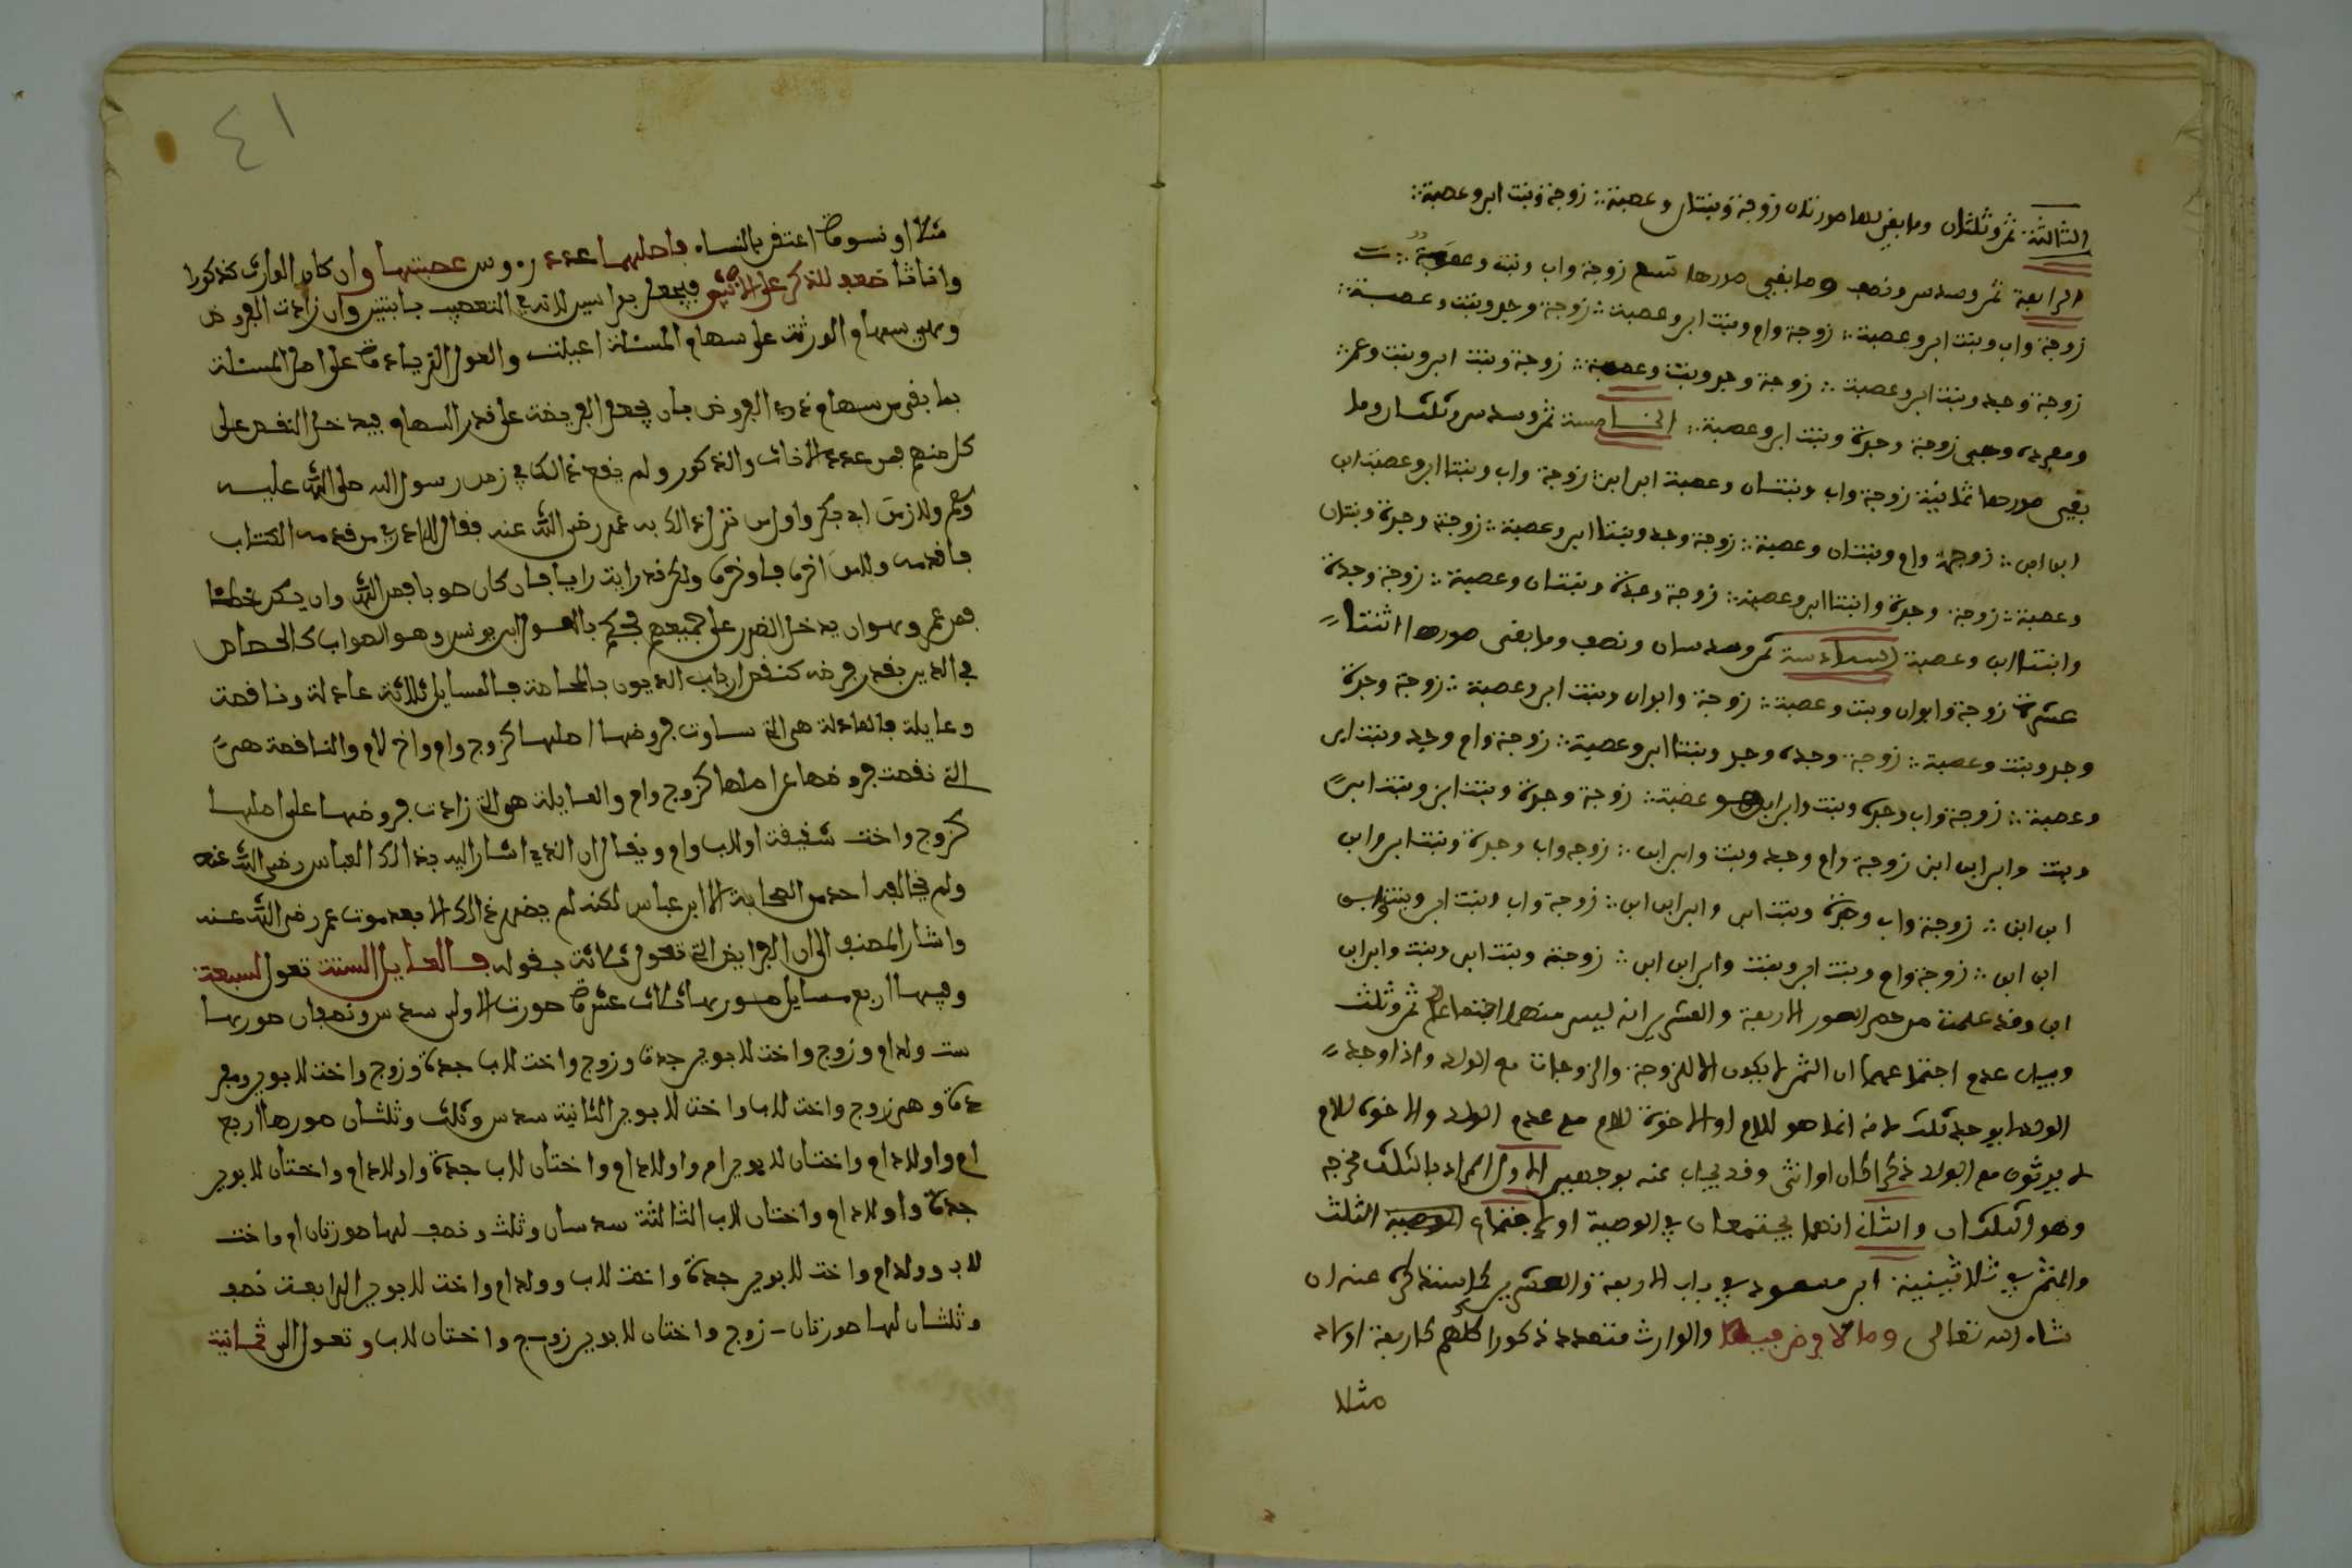 الثالثة ثمن وثلثان وما بقي لها صورتان زوجة وبنتان وعصبة ∴ زوجة وبنتا ابن وعصبة ∴
الرابعة ثمن وسدس ونصف وما بقي صورها تسع زوجة واب وبنت وعصبة ∴
زوجة واب وبنت ابن وعصبة ∴ زوجة وام وبنت ابن وعصبة ∴ زوجة وجد وبنت وعصبة ∴
زوجة وجد وبنت ابن وعصبة ∴ زوجة وجد وبنت وعصبة ∴ زوجة وبنت ابن وبنت وعم ∴
وهي زوجة وجدة وبنت ابن وعصبة ∴ الخامسة ثمن وسدس وثلثان وما
بقي صورها ثمانية زوجة واب وبنتان وعصبة ابن ابن ∴ زوجة واب وبنتا ابن وعصبة ابن
ابن ابن ∴ زوجة وام وبنتان وعصبة ∴ زوجة وجد وبنتا ابن وعصبة ∴ زوجة وجدة وبنتان
وعصبة ∴ زوجة وجدة وابنتا ابن وعصبة ∴ زوجة وجدة وبنتان وعصبة ∴ زوجة وجدة
وابنتا ابن وعصبة السادسة ثمن وسدسان ونصف وما بقي صورها اثنتا
عشرة زوجة وابوان وبنت وعصبة ∴ زوجة وابوان وبنت ابن وعصبة ∴ زوجة وجدة
وجد وبنت وعصبة ∴ زوجة وجدة وجد وبنتا ابن وعصبة ∴ زوجة وام وجد وبنت ابن
وعصبة ∴ زوجة واب وجدة وبنت وابن ابن وعصبة ∴ زوجة وجدة وبنت ابن وبنت ابن
وبنت وابن ابن ابن زوجة وام وجد وبنت وابن ابن ∴ زوجة واب وجدة وبنت ابن وابن
ابن ابن ∴ زوجة واب وجدة وبنت ابن وابن ابن ابن ∴ زوجة واب وبنت ابن وبنت وابن
ابن ابن ∴ زوجة وام وبنت ابن وبنت وابن ابن ابن ∴ زوجة وبنت ابن وبنت وابن ابن
ابن وقد علمت من حصر الصور الاربعة والعشرين انه ليس منها اجتماع ثمن وثلث
وبيان عدم اجتماعهما ان الثمن لا يكون الا للزوجة والزوجات مع الولد واذا وجد
الولد لا يوجد ثلث لانه انما هو للام او الاخوة للام مع عدم الولد والاخوة للام
لا يرثون مع الولد ذكرا كان او انثى وقد يجاب عنه بوجهين الاول المراد بالثلث مخرجه
وهو الثلثان والثاني انهما يجتمعان في الوصية اول اجتماع الوصية الثلث
والثمن في ثلاثينية ابن مسعود في باب الاربعة والعشرين كما سنذكره عنه ان
شاء الله تعالى وما لا فرض فيها والوارث متعدد ذكورا كلهم كاربعة اولاد
مثلا
٤١
مثلا او نسوة اعتقن بالنساء فاصلها عدد رءوس عصبتها وان كان الوارث ذكورا
واناثا ضعف للذكر على الانثى فيجعل براسين لانه في التعصيب بابنتين وان زادت الفروض
وهي سهام الورثة على سهام المسئلة اعيلت والعول الزيادة على اصل المسئلة
بما بقي من سهام ذوي الفروض بان يجعل الفريضة على قدر السهام فيدخل النقص على
كل منهم بقدر عدد الاناث والذكور ولم يقع ذالك في زمن رسول الله صلى الله عليه
وسلم ولا زمن ابي بكر واول من نزل ذالك به عمر رضي الله عنه فقال لا ادري من قدمه الكتاب
فاقدمه ولا من اخره فاوخره ولكن قد رايت رايا فان كان صوبا فمن الله وان يكن خطا
فمن عمر وهو ان يدخل الضرر على جميعهم فحكم بالعول ابن يونس وهو الصواب كالحصاص
في الدين بقدر فرضه كنقص ارباب الديون بالمحاصة فالمسايل ثلاثة عادلة وناقصة
وعايلة فالعادلة هي التي ساوت فروضها اصلها كزوج وام واخ لام والناقصة هي
التي نقصت فروضها عن اصلها كزوج وام والعايلة هي التي زادت فروضها على اصلها
كزوج واخت شقيقة او لاب وام ويقال ان الذي اشار اليه بذالك العباس رضي الله عنه
ولم يخالف احد من الصحابة الا ابن عباس لكنه لم يظهر ذالك الا بعد موت عمر رضي الله عنه
واشار المصنف الى ان الفرايض التي تعول ثلاثة بقوله فالعايل الستة تعول لسبعة
وفيها اربع مسايل صورها ثلاث عشرة صورة الاولى سدس ونصفان صورها
ست ولد ام وزوج واخت لابوين جدة وزوج واخت لاب جدة وزوج واخت لابوين
وهي زوج واخت لاب واخت لابوين الثانية سدس وثلث وثلثان صورها اربع
ام واولاد ام واختان لابوين ام واولاد ام واختان لاب جدة واولاد ام واختان لابوين
جدة واولاد ام واختان لاب الثالثة سدسان وثلث ونصف لها صورتان ام واخت
لاب وولد ام واخت لابوين جدة واخت لاب وولد ام واخت لابوين الرابعة نصف
وثلثان لها صورتان زوج واختان لابوين زوج واختان لاب وتعول الى ثمانية